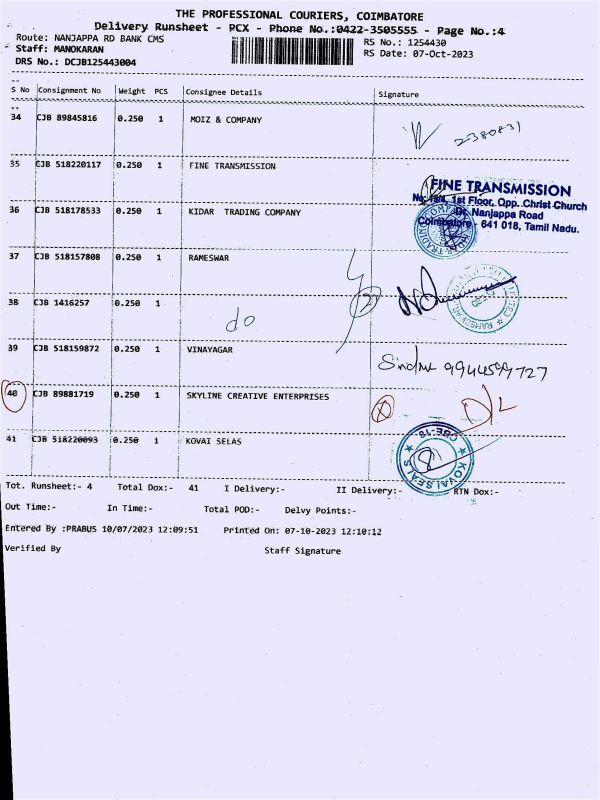 THE PROFESSIONAL COURIERS, COIMBATORE
Delivery Runsheet - PCX - Phone No.:0422-3505555 - Page No.:4
Route: NANJAPPA RD BANK CMS RS No.: 1254430
Staff: MANOKARAN RS Date: 07-Oct-2023
DRS No.: DCJB125443004
S No Consignment No Weight PCS Consignee Details Signature
34 CJB 89845816 0.250 1 MOIZ & COMPANY
35 CJB 518220117 0.250 1 FINE TRANSMISSION
FINE TRANSMISSION
1st Floor, Opp. Christ Church
Dr. Nanjappa Road
Coimbatore - 641 018, Tamil Nadu.
36 CJB 518178533 0.250 1 KIDAR TRADING COMPANY
37 CJB 518157808 0.250 1 RAMESWAR
38 CJB 1416257 0.250 1 do
39 CJB 518159872 0.250 1 VINAYAGAR
40 CJB 89881719 0.250 1 SKYLINE CREATIVE ENTERPRISES
D/L
41 CJB 518220093 0.250 1 KOVAI SELAS
KOVAI SEALS CBE-18
Tot. Runsheet:- 4 Total Dox:- 41 I Delivery:- II Delivery:- RTN Dox:-
Out Time:- In Time:- Total POD:- Delvy Points:-
Entered By :PRABUS 10/07/2023 12:09:51 Printed On: 07-10-2023 12:10:12
Verified By Staff Signature